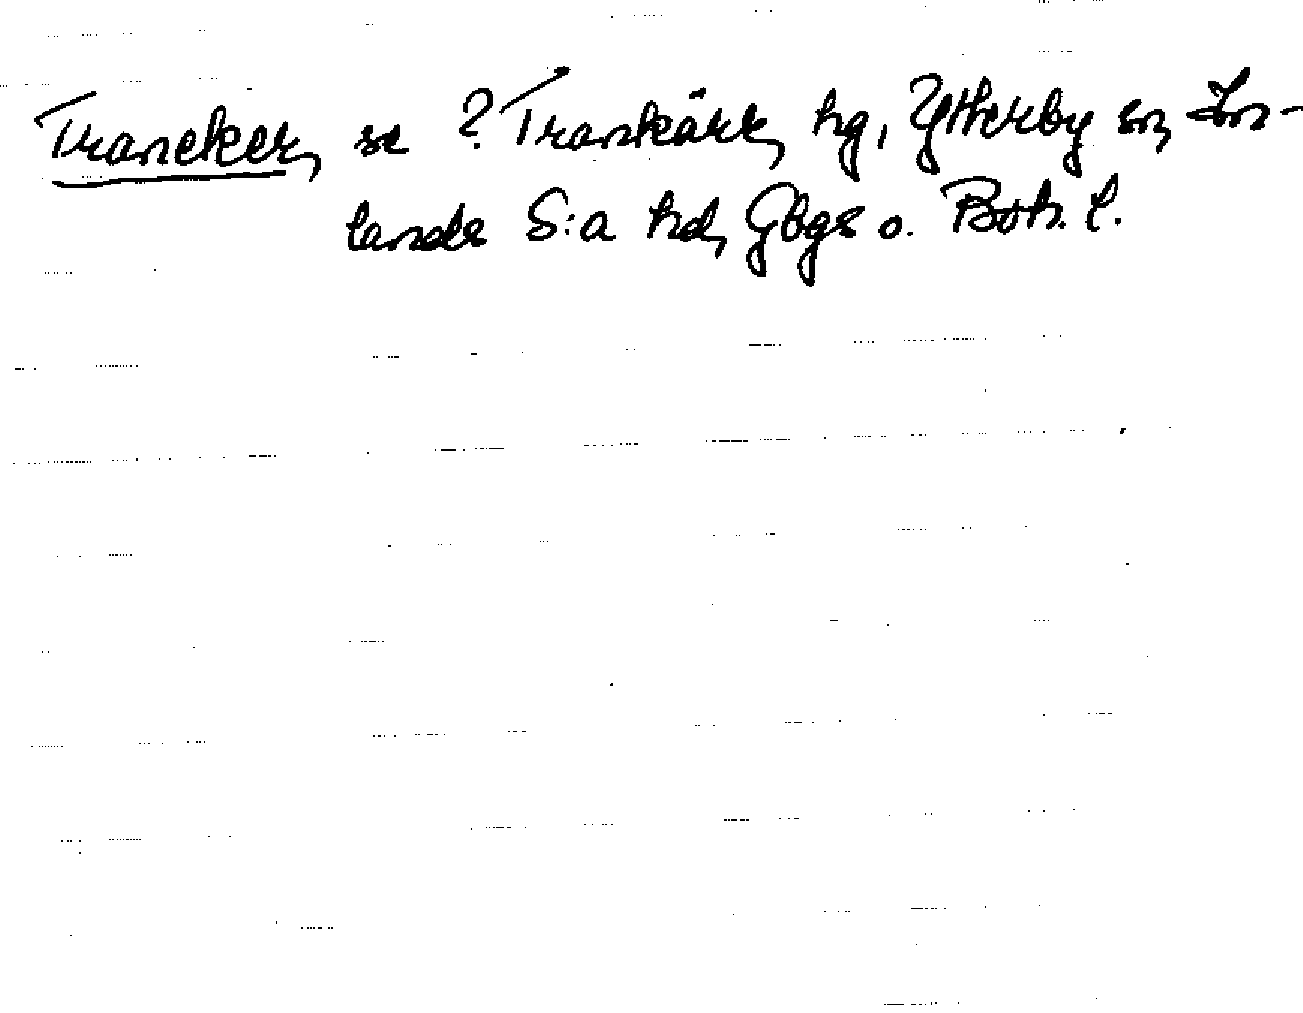 Traneker, se ? Trankärr, hg, Ytterby sn, In-
lands S:a hd, Gbgs o. Boh. l.